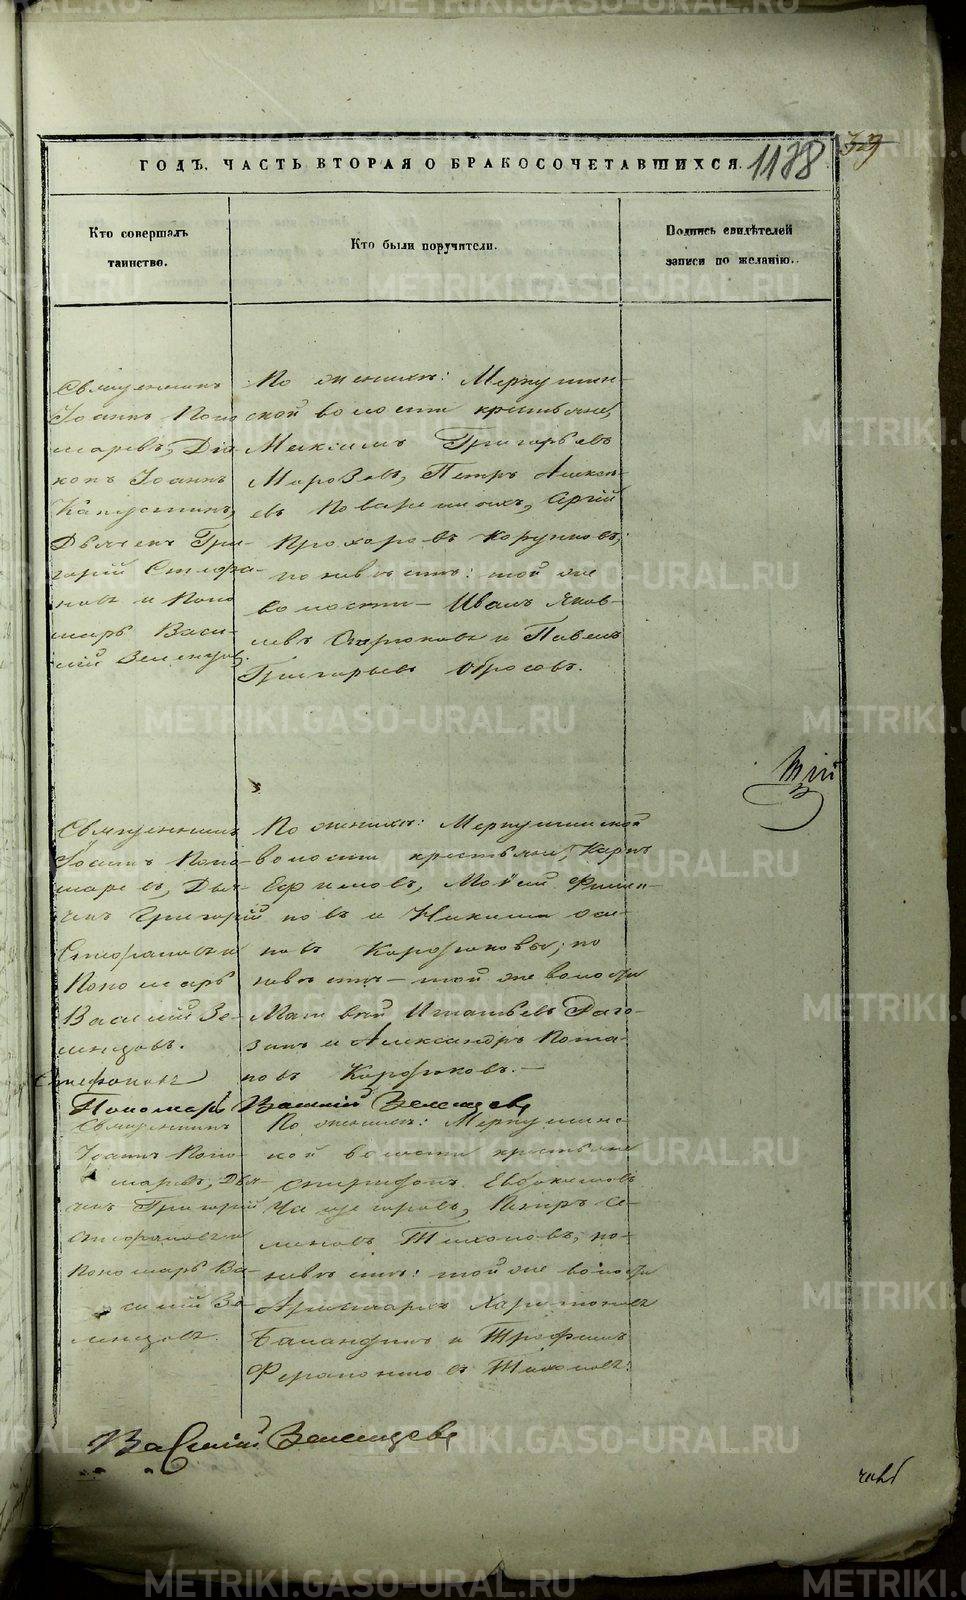 ГОДЪ. ЧАСТЬ ВТОРАЯ О БРАКОСОЧЕТАВШИХСЯ. 1178
Кто совершалъ
таинство.
Кто были поручители.
Подпись свидѣтелей
записи по желанію.
Священникъ
Іоаннъ Поно
маревъ, Діа
конъ Іоаннъ
Капустинъ,
Дьячекъ Гри
горій Стефа-
новъ и Поно
марь Васи-
лій Зеленцовъ.
По женихѣ: Меркушин-
ской волости крестьяне
Максимъ Григорьевъ
Морозовъ, Петръ Алексѣ-
евъ
Прохоровъ
по невѣстѣ: той же
волости – Иванъ Яков-
левъ и Павелъ
Григорьевъ Обросовъ.
Священникъ
Іоаннъ Поно-
маревъ, Дья-
чекъ Григорій
Стефановъ и
Пономарь
Василій Зе-
ленцовъ.
По женихѣ: Меркушинской
волости крестьяне, Карпъ
Ефимовъ, Моѵсей Филип-
повъ и Никита Оси-
повъ; по
невѣстѣ – той же волости
Матвѣй Игнатьевъ Раго-
зинъ и Александръ Пота-
повъ
Стефановъ
Пономарь Василій Зеленцовъ
Священникъ
Іоаннъ Поно-
маревъ, Дья-
чекъ Григорій
Стефановъ и
Пономарь Ва-
силій Зе-
ленцовъ.
По женихѣ: Меркушинс-
кой волости крестьяне
Спиридонъ Евдокимовъ
Чащегоровъ, Петръ Се-
меновъ Тихоновъ, по
невѣстѣ: той же волости
Харитоновъ
Баландинъ и Трофимъ
Ферапонтовъ Тихоновъ.
Василій Зеленцовъ
METRIKI.GASO-URAL.RU